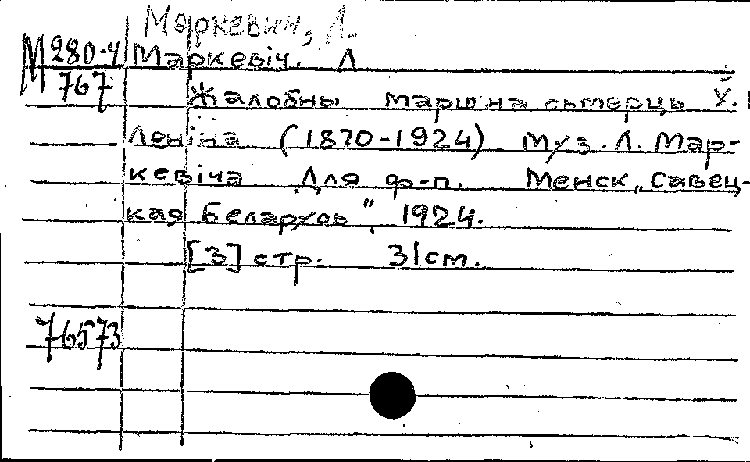 Маркевич, Л.
М 280-4 Маркевіч. Л
767
Жалобны марш на сьмерць Ў.
Леніна (1870-1924) Муз. Л. Мар-
кевіча Для ф-п. Менск, „Савец-
кая Беларусь", 1924.
[3] стр. 31см.
76573